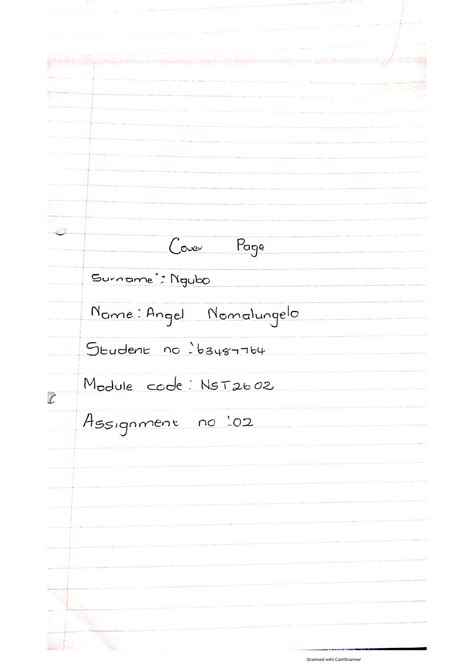 Cover Page
Surname: Ngubo
Name: Angel Nomalungelo
Student no: 63487764
Module code: NST2602
Assignment no: 02
Scanned with CamScanner